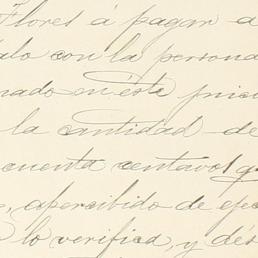 Flores á pagar a
alo con la persona
nado en éste juici
la cantidad de
cuenta centavos q
, apercibido de eje
lo verifica, y dés